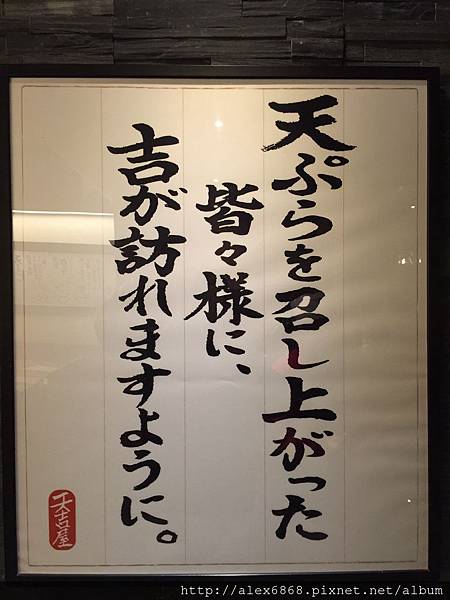 天ぷらを召し上がった
皆々様に、
吉が訪れますように。
天吉屋
http://alex6868.pixnet.net/album